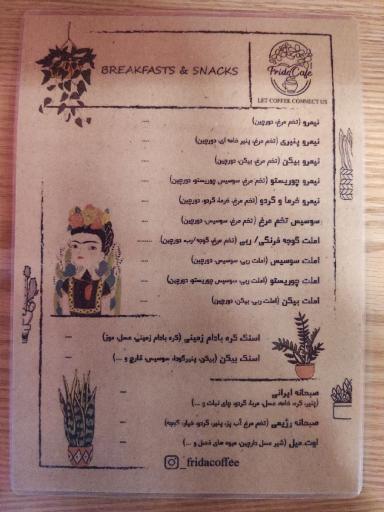 BREAKFASTS & SNACKS
Frida Cafe
LET COFFEE CONNECT US
نیمرو (تخم مرغ، دورچین)
نیمرو پنیری (تخم مرغ، پنیر خامه ای، دورچین)
نیمرو بیکن (تخم مرغ، بیکن، دورچین)
نیمرو چوریستو (تخم مرغ، سوسیس چوریستو، دورچین)
نیمرو خرما و گردو (تخم مرغ، خرما، گردو، دورچین)
سوسیس تخم مرغ (تخم مرغ، سوسیس، دورچین)
املت گوجه فرنگی/ ربی (تخم مرغ، گوجه/رب، دورچین)
املت سوسیس (املت ربی، سوسیس، دورچین)
املت چوریستو (املت ربی، سوسیس چوریستو، دورچین)
املت بیکن (املت ربی، بیکن، دورچین)
اسنک کره بادام زمینی (کره بادام زمینی، عسل، موز)
اسنک بیکن (بیکن، پنیر گودا، سوسیس، قارچ و ...)
صبحانه ایرانی
(پنیر، کره، خامه، عسل، مربا، گردو، چای نبات و ...)
صبحانه رژیمی (تخم مرغ آب پز، پنیر، گردو، خیار، گوجه)
اوت میل (شیر عسل دارچین، میوه های فصل و ...)
_fridacoffee